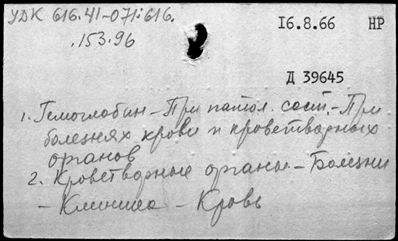 УДК 616.41-071:616.
.153.96
16.8.66 НР
Д 39645
1. Гемоглобин - При патол. сост. - При
болезнях крови и кроветворных
органов
2. Кроветворные органы - Болезни
- Клиника - Кровь